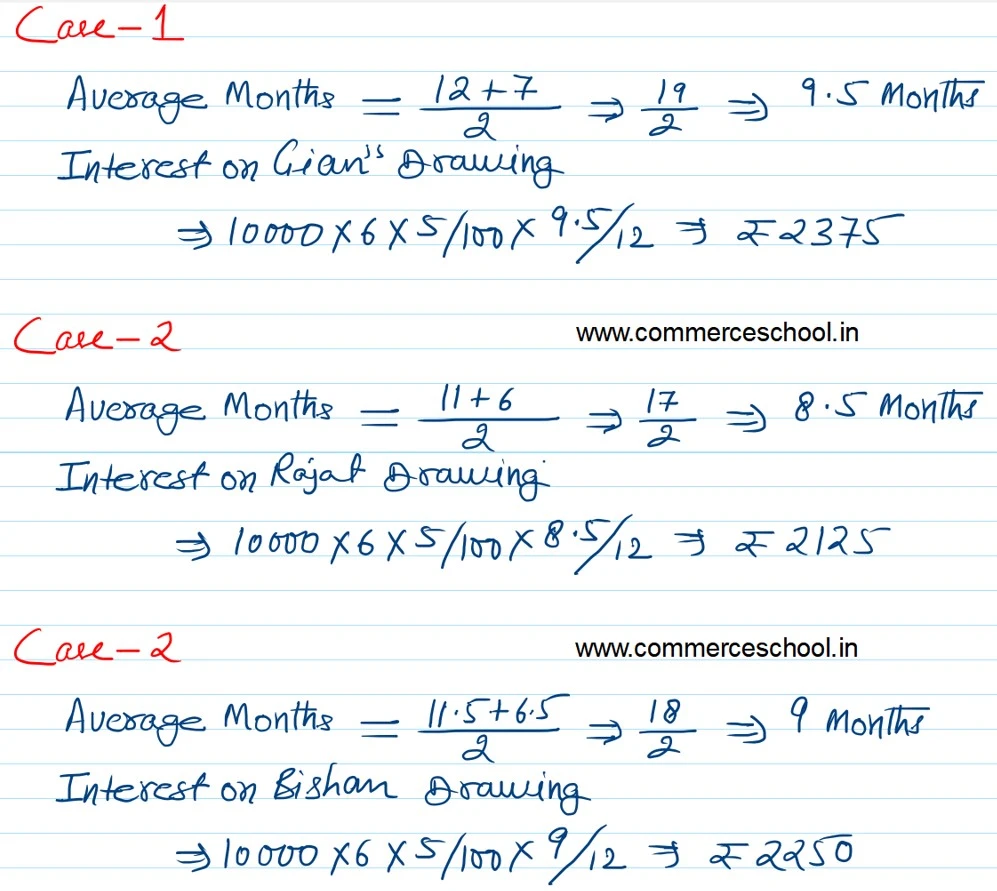 Case-1
Average Months = 12+7/2 ⇒ 19/2 ⇒ 9.5 Months
Interest on Gian's Drawing
⇒ 10000 × 6 × 5/100 × 9.5/12 ⇒ ₹2375
Case-2
www.commerceschool.in
Average Months = 11+6/2 ⇒ 17/2 ⇒ 8.5 Months
Interest on Rajat Drawing
⇒ 10000 × 6 × 5/100 × 8.5/12 ⇒ ₹2125
Case-2
www.commerceschool.in
Average Months = 11.5+6.5/2 ⇒ 18/2 ⇒ 9 Months
Interest on Bishan Drawing
⇒ 10000 × 6 × 5/100 × 9/12 ⇒ ₹2250